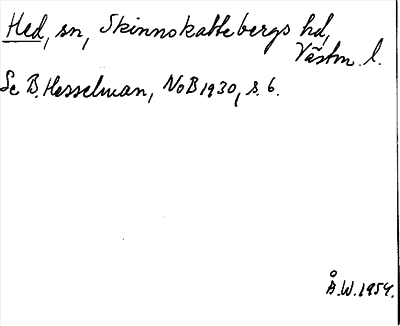 Hed, sn, Skinnskattebergs hd,
Västm. l.
Se B. Hesselman, NoB 1930, s. 6.
Å.W. 1954.